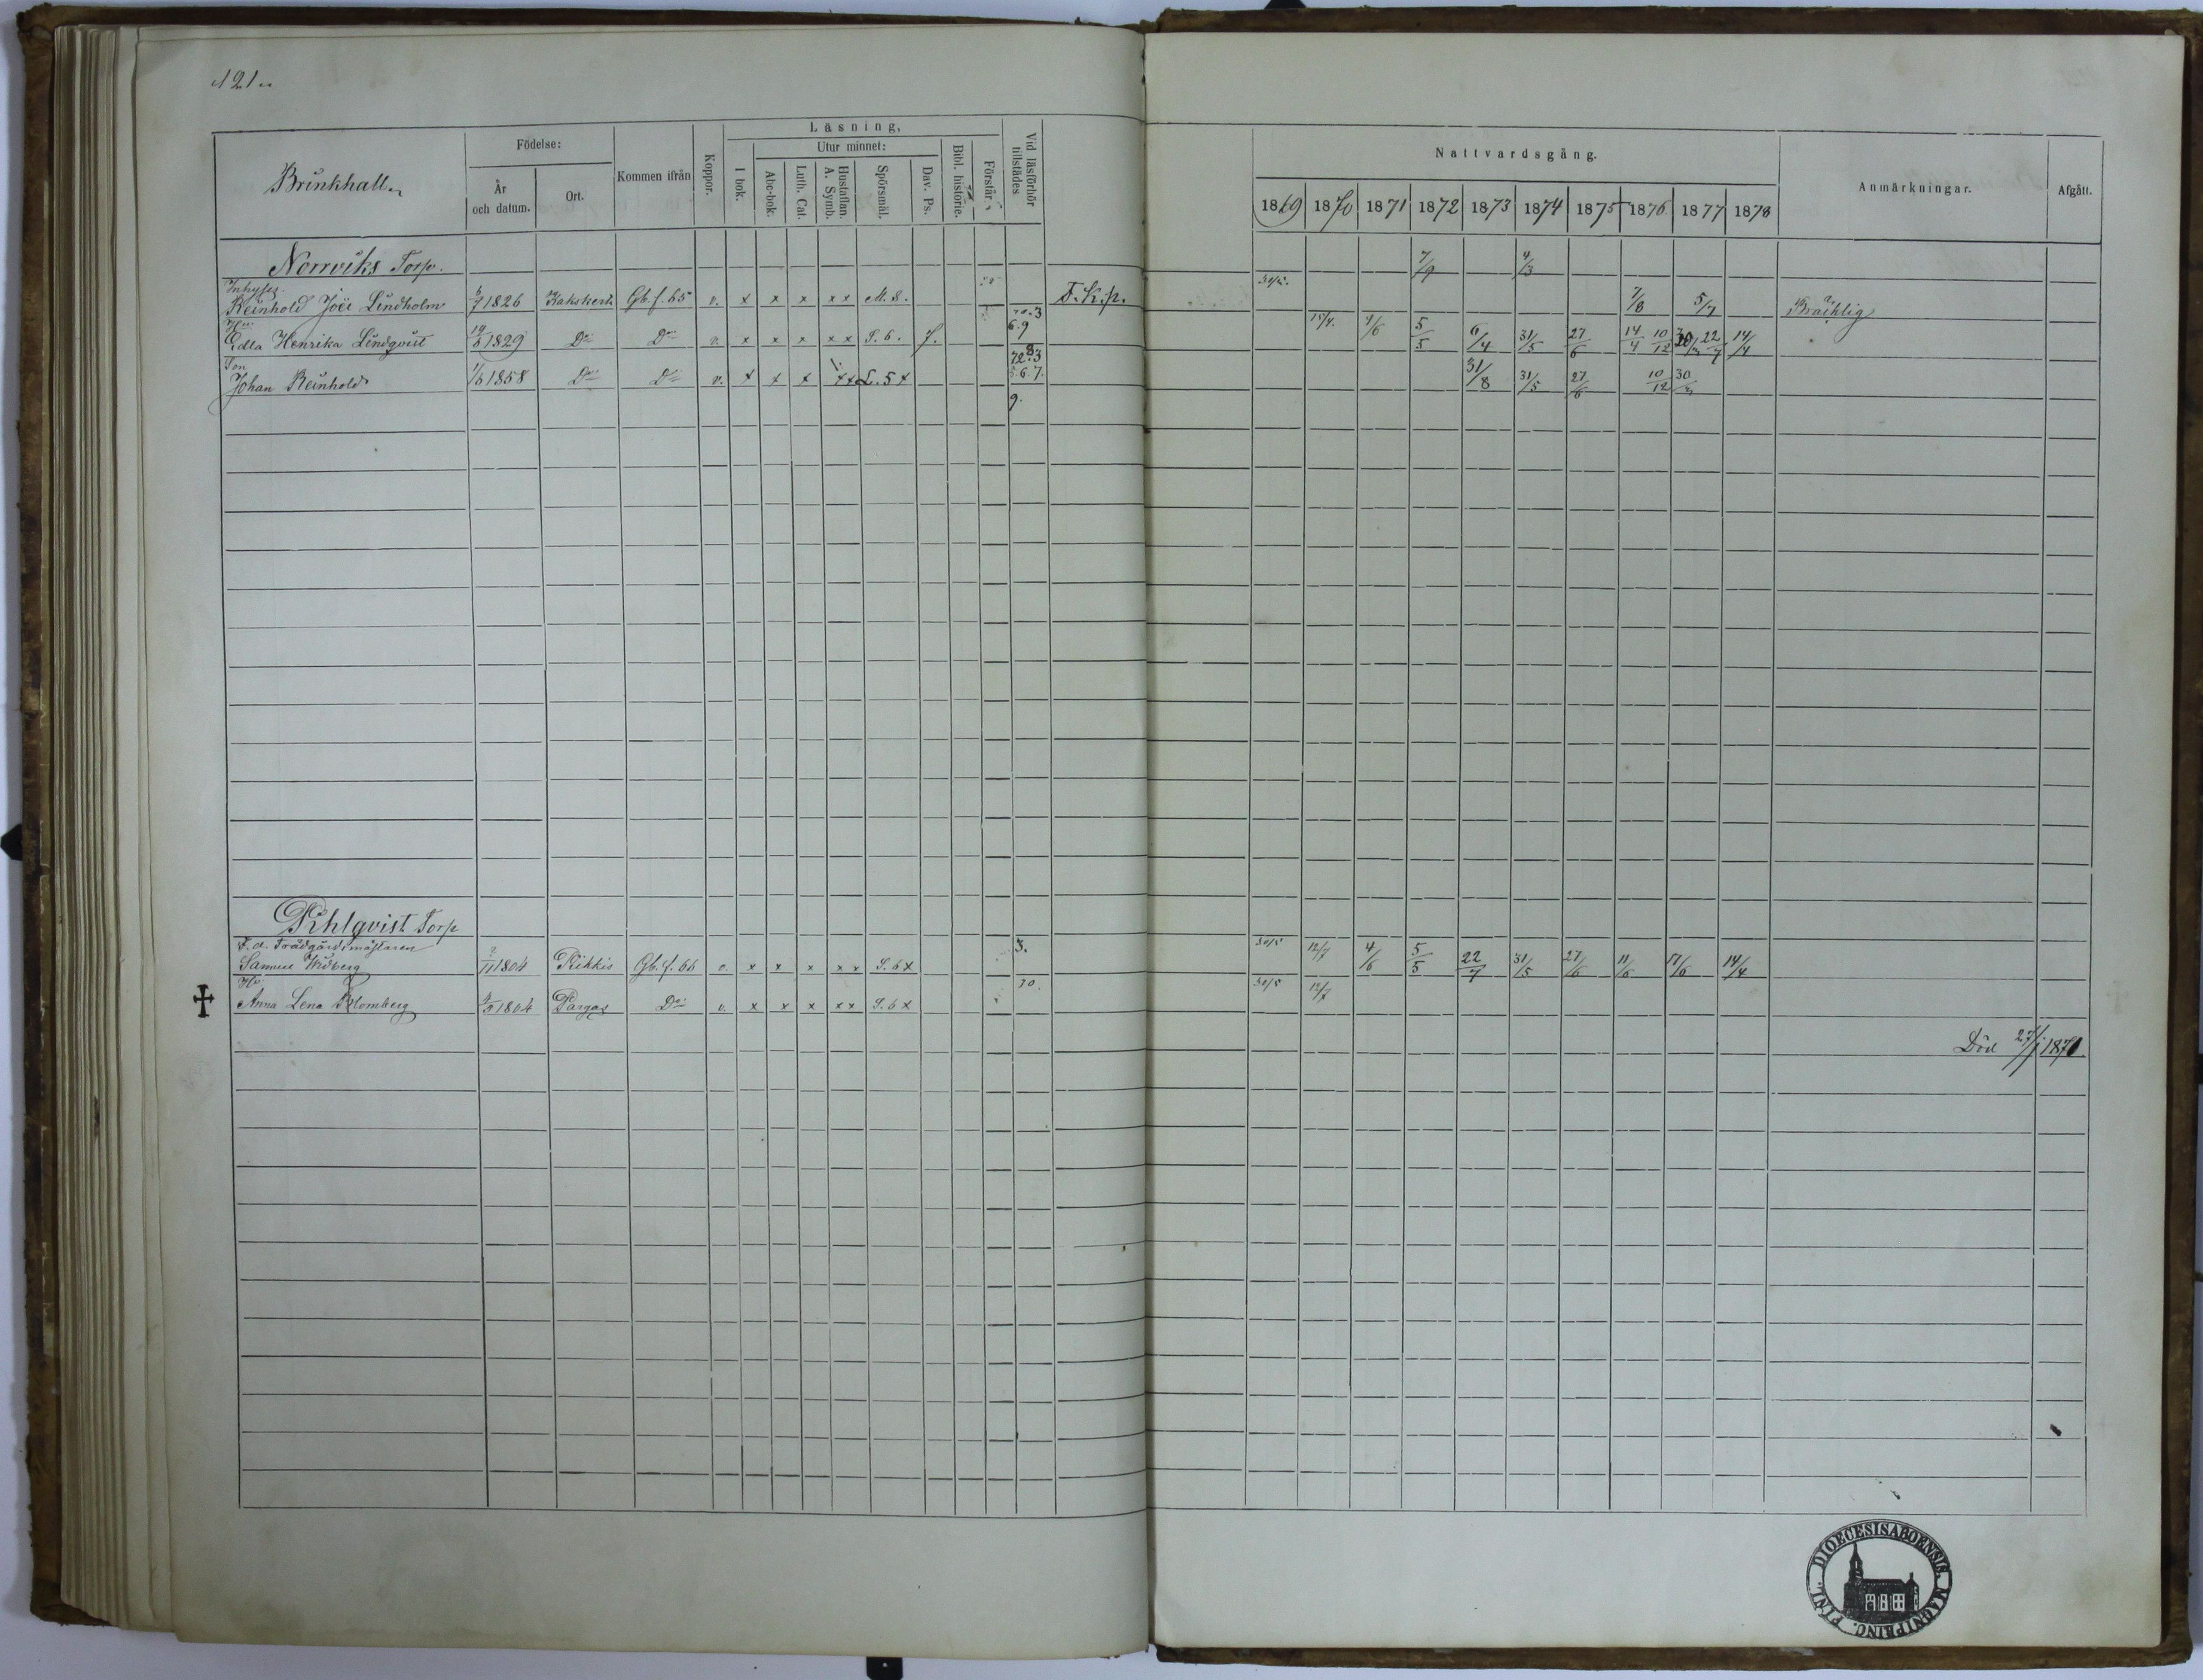 121
Brinkhall
Födelse:
År och datum.
Ort.
Kommen ifrån
Koppor.
Läsning,
I bok.
Utur minnet:
Abc-bok.
Luth. Cat.
Hustaflan. A. Symb.
Spörsmål.
Dav. Ps.
Bibl. historie.
Förstår.
Vid läsförhör tillstädes
Nattvardsgång.
1869 1870 1871 1872 1873 1874 1875 1876 1877 1878
Anmärkningar.
Afgått.
Norrviks Torp. 7/9 4/3
Inhyses
Reinhold Joël Lindholm 6/7 1826 Kakskerta Gb. f. 65 v. x x x x x M. 8. F. K. p. 30/5. 7/8 5/7 Bräcklig
Hu
Edla Henrika Lindqvist 1829 Do Do v. x x x x x S. 6. f. 6.9 4/6 5/5 6/4 31/5 27/6 14/4 10/12 22/7 14/4
Son
Johan Reinhold 1858 Do Do v. x x x x x L. 5 x 72.3 5.6.7. 9. 31/8 31/5 27/6 10/12 30
Pihlqvist Torp
F.d. Trädgårdsmästaren
Samuel Widberg 1804 Piikkis Gb. f. 66 v. x x x x x S. 6 x 3. 30/5 12/7 4/6 5/5 22/7 31/5 27/6 11/6 17/6 14/4
Hu
Anna Lena Blomberg 1804 Pargas Do v. x x x x x S. 6 x 70. 30/5 12/7
Död 27/1 1871
DIOECESIS ABOENSIS. MAGNI PRINC. FINL.